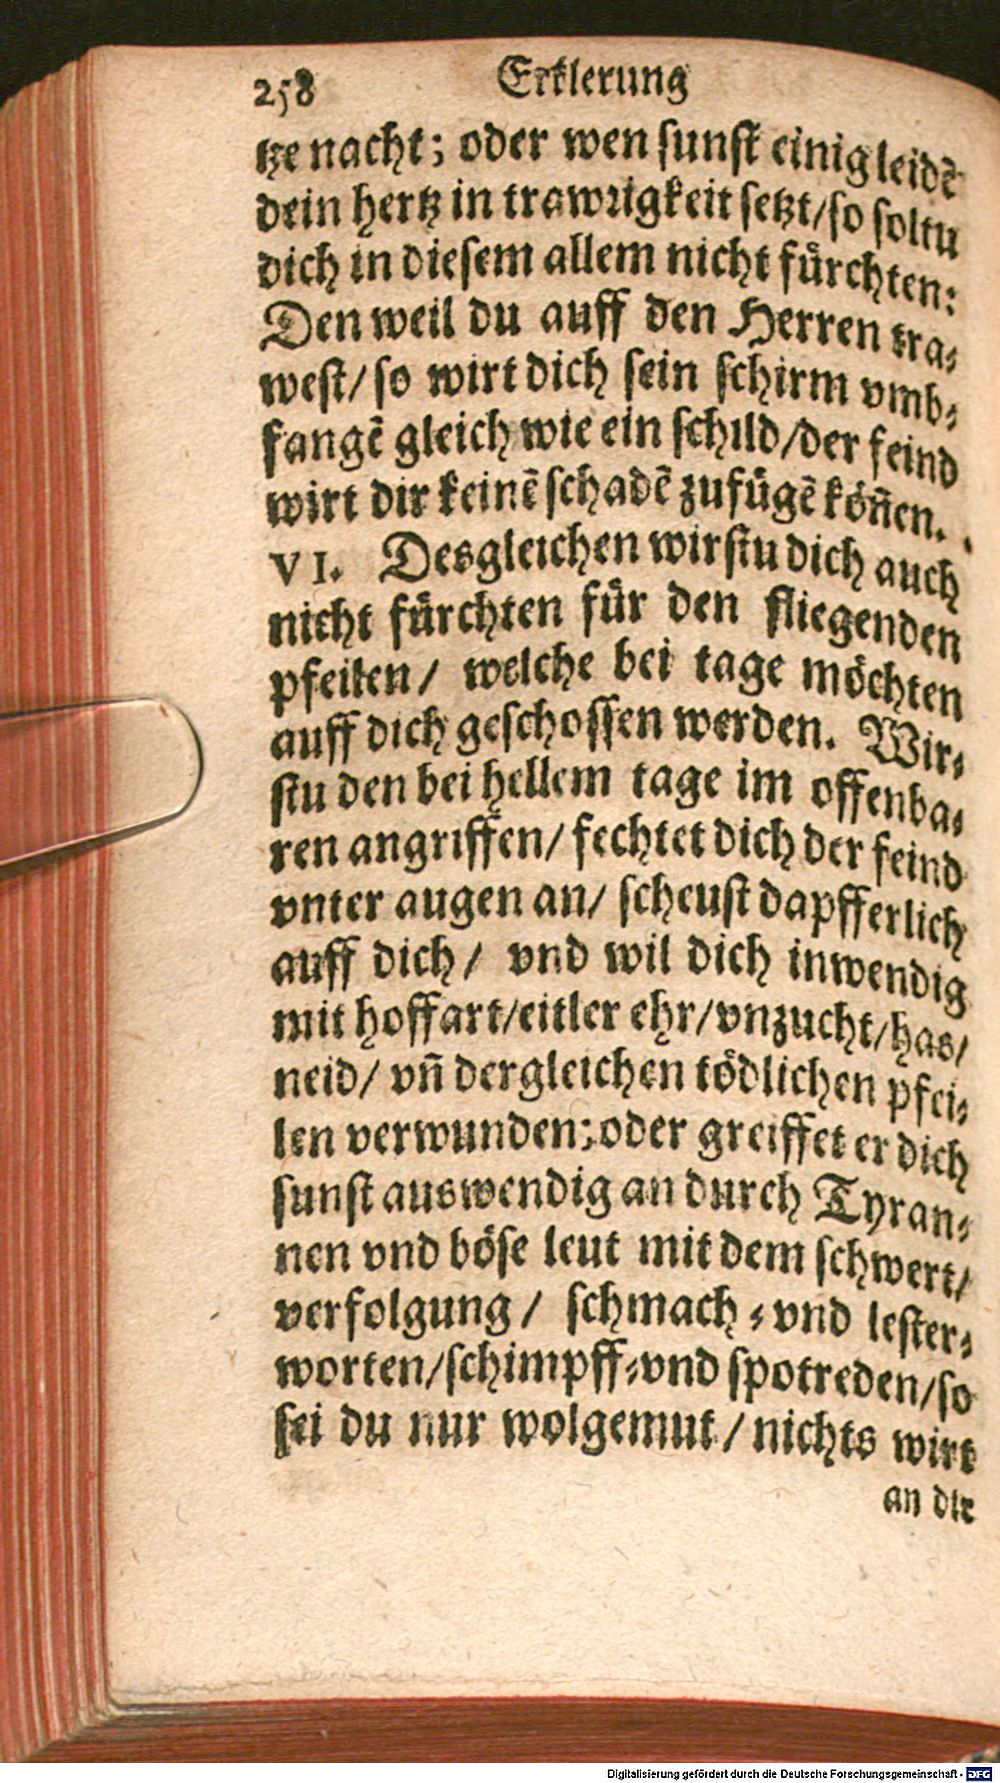 258 Erklerung
tze nacht; oder wen sunst einig leidē
dein hertz in trawrigkeit setzt/so soltu
dich in diesem allem nicht fürchten:
Den weil du auff den Herren tra-
west/ so wirt dich sein schirm vmb-
fangē gleich wie ein schild/der feind
wirt dir keinē schadē zufügē kön̄en.
VI. Desgleichen wirstu dich auch
nicht fürchten für den fliegenden
pfeilen/ welche bei tage möchten
auff dich geschossen werden. Wir-
stu den bei hellem tage im offenba-
ren angriffen/ fechtet dich der feind
vnter augen an/ scheust dapfferlich
auff dich/ vnd wil dich inwendig
mit hoffart/eitler ehr/vnzucht/has/
neid/ vn̄ dergleichen tödlichen pfei-
len verwunden; oder greiffet er dich
sunst auswendig an durch Tyran-
nen vnd böse leut mit dem schwert/
verfolgung/ schmach-vnd lester-
worten/schimpff-vnd spotreden/so
sei du nur wolgemut/nichts wirt
an dir
Digitalisierung gefördert durch die Deutsche Forschungsgemeinschaft - DFG